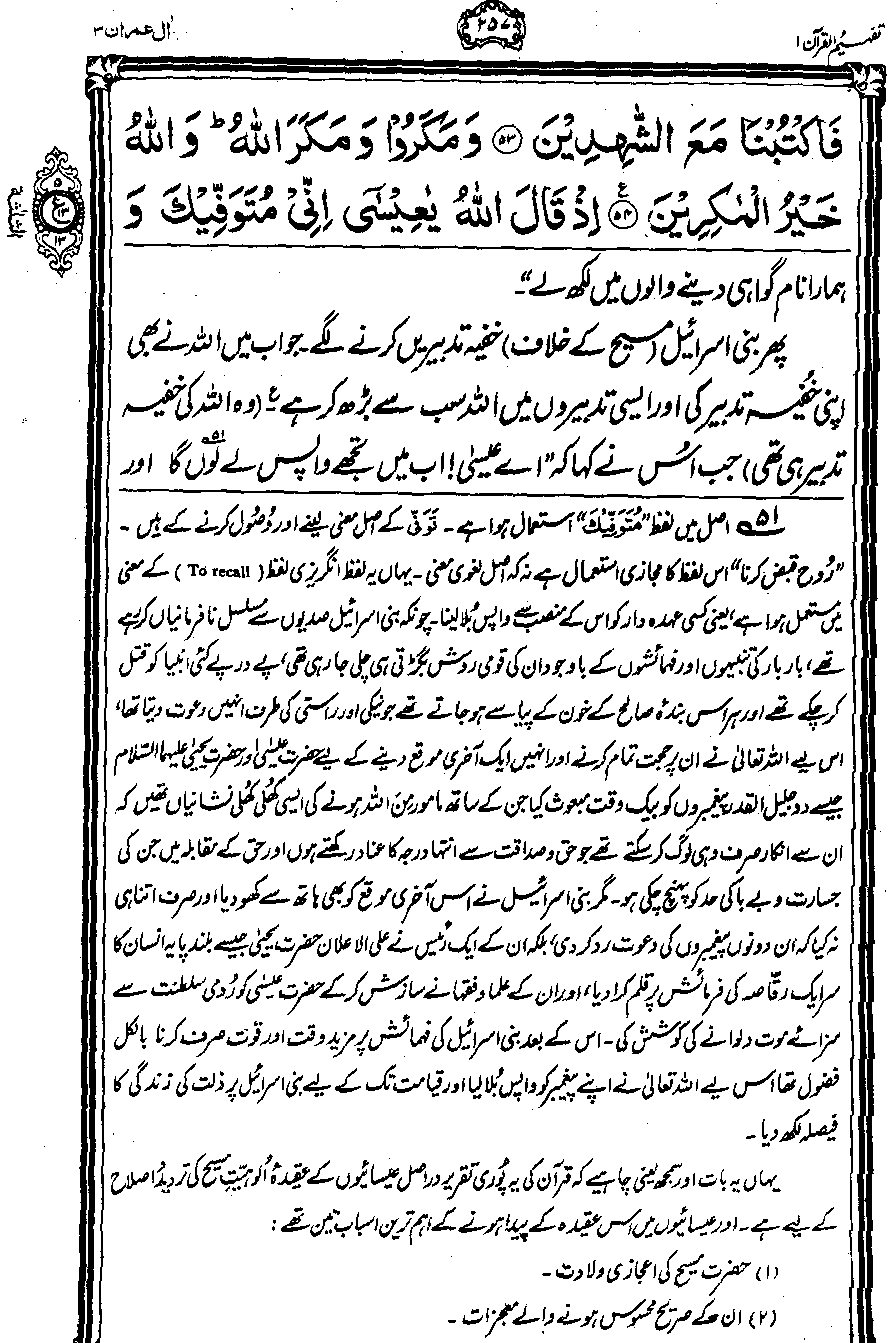 تفہیم القرآن ۱
۲۵۷
اٰل عمران ۳
فَاكْتُبْنَا مَعَ الشّٰهِدِيْنَ ﴿۵۳﴾ وَمَكَرُوْا وَمَكَرَ اللّٰهُ ؕ وَاللّٰهُ
خَيْرُ الْمٰكِرِيْنَ ﴿۵۴﴾ اِذْ قَالَ اللّٰهُ يٰعِيْسٰٓى اِنِّيْ مُتَوَفِّيْكَ وَ
۵
ع
۱۳
۱۳
ہمارا نام گواہی دینے والوں میں لکھ لے“۔
پھر بنی اسرائیل (مسیح کے خلاف) خفیہ تدبیریں کرنے لگے۔ جواب میں اللہ نے بھی
اپنی خُفیہ تدبیر کی اور ایسی تدبیروں میں اللہ سب سے بڑھ کر ہے ؏ (وہ اللہ کی خفیہ
تدبیر ہی تھی) جب اُس نے کہا کہ ”اے عیسیٰ! اب میں تجھے واپس لے لُوں گا ۵۱ اور
۵۱ اصل میں لفظ ”مُتَوَفِّيْكَ“ استعمال ہوا ہے۔ تَوَفّی کے اصل معنی لینے اور وُصُول کرنے کے ہیں۔
”رُوح قبض کرنا“ اس لفظ کا مجازی استعمال ہے نہ کہ اصل لغوی معنی۔ یہاں یہ لفظ انگریزی لفظ (To recall) کے معنی
میں مستعمل ہوا ہے، یعنی کسی عہدہ دار کو اس کے منصب سے واپس بُلا لینا۔ چونکہ بنی اسرائیل صدیوں سے مسلسل نافرمانیاں کر رہے
تھے، بار بار کی تنبیہوں اور فہمائشوں کے باوجود ان کی قومی روش بگڑتی ہی چلی جا رہی تھی، پے در پے کئی انبیا کو قتل
کر چکے تھے اور ہر اس بندۂ صالح کے خون کے پیاسے ہو جاتے تھے جو نیکی اور راستی کی طرف انہیں دعوت دیتا تھا،
اس لیے اللہ تعالیٰ نے ان پر حجت تمام کرنے اور انہیں ایک آخری موقع دینے کے لیے حضرت عیسیٰؑ اور حضرت یحییٰ علیہما السّلام
جیسے دو جلیل القدر پیغمبروں کو بیک وقت مبعوث کیا جن کے ساتھ مامور مِنَ اللہ ہونے کی ایسی کُھلی کُھلی نشانیاں تھیں کہ
ان سے انکار صرف وہی لوگ کر سکتے تھے جو حق و صداقت سے انتہا درجہ کا عناد رکھتے ہوں اور حق کے مقابلہ میں جن کی
جسارت و بے باکی حد کو پہنچ چکی ہو۔ مگر بنی اسرائیل نے اس آخری موقع کو بھی ہاتھ سے کھو دیا اور صرف اتنا ہی
نہ کیا کہ ان دونوں پیغمبروں کی دعوت رد کر دی، بلکہ ان کے ایک رئیس نے علی الاعلان حضرت یحییٰ جیسے بلند پایہ انسان کا
سر ایک رقّاصہ کی فرمائش پر قلم کرا دیا، اور ان کے علما و فقہا نے سازش کر کے حضرت عیسیٰ کو رُومی سلطنت سے
سزائے موت دلوانے کی کوشش کی۔ اس کے بعد بنی اسرائیل کی فہمائش پر مزید وقت اور قوّت صرف کرنا بالکل
فضول تھا اس لیے اللہ تعالیٰ نے اپنے پیغمبر کو واپس بُلا لیا اور قیامت تک کے لیے بنی اسرائیل پر ذلّت کی زندگی کا
فیصلہ لکھ دیا۔
یہاں یہ بات اور سمجھ لینی چاہیے کہ قرآن کی یہ پُوری تقریر دراصل عیسائیوں کے عقیدۂ اُلوہیّتِ مسیح کی تردید و اصلاح
کے لیے ہے۔ اور عیسائیوں میں اس عقیدہ کے پیدا ہونے کے اہم ترین اسباب تین تھے:
(۱) حضرت مسیح کی اعجازی ولادت۔
(۲) ان کے صریح محسوس ہونے والے معجزات۔